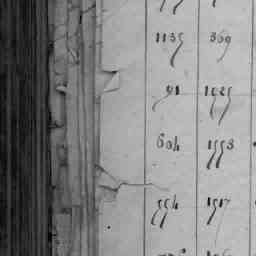 1135 369
91 1025
604 1553
554 1517